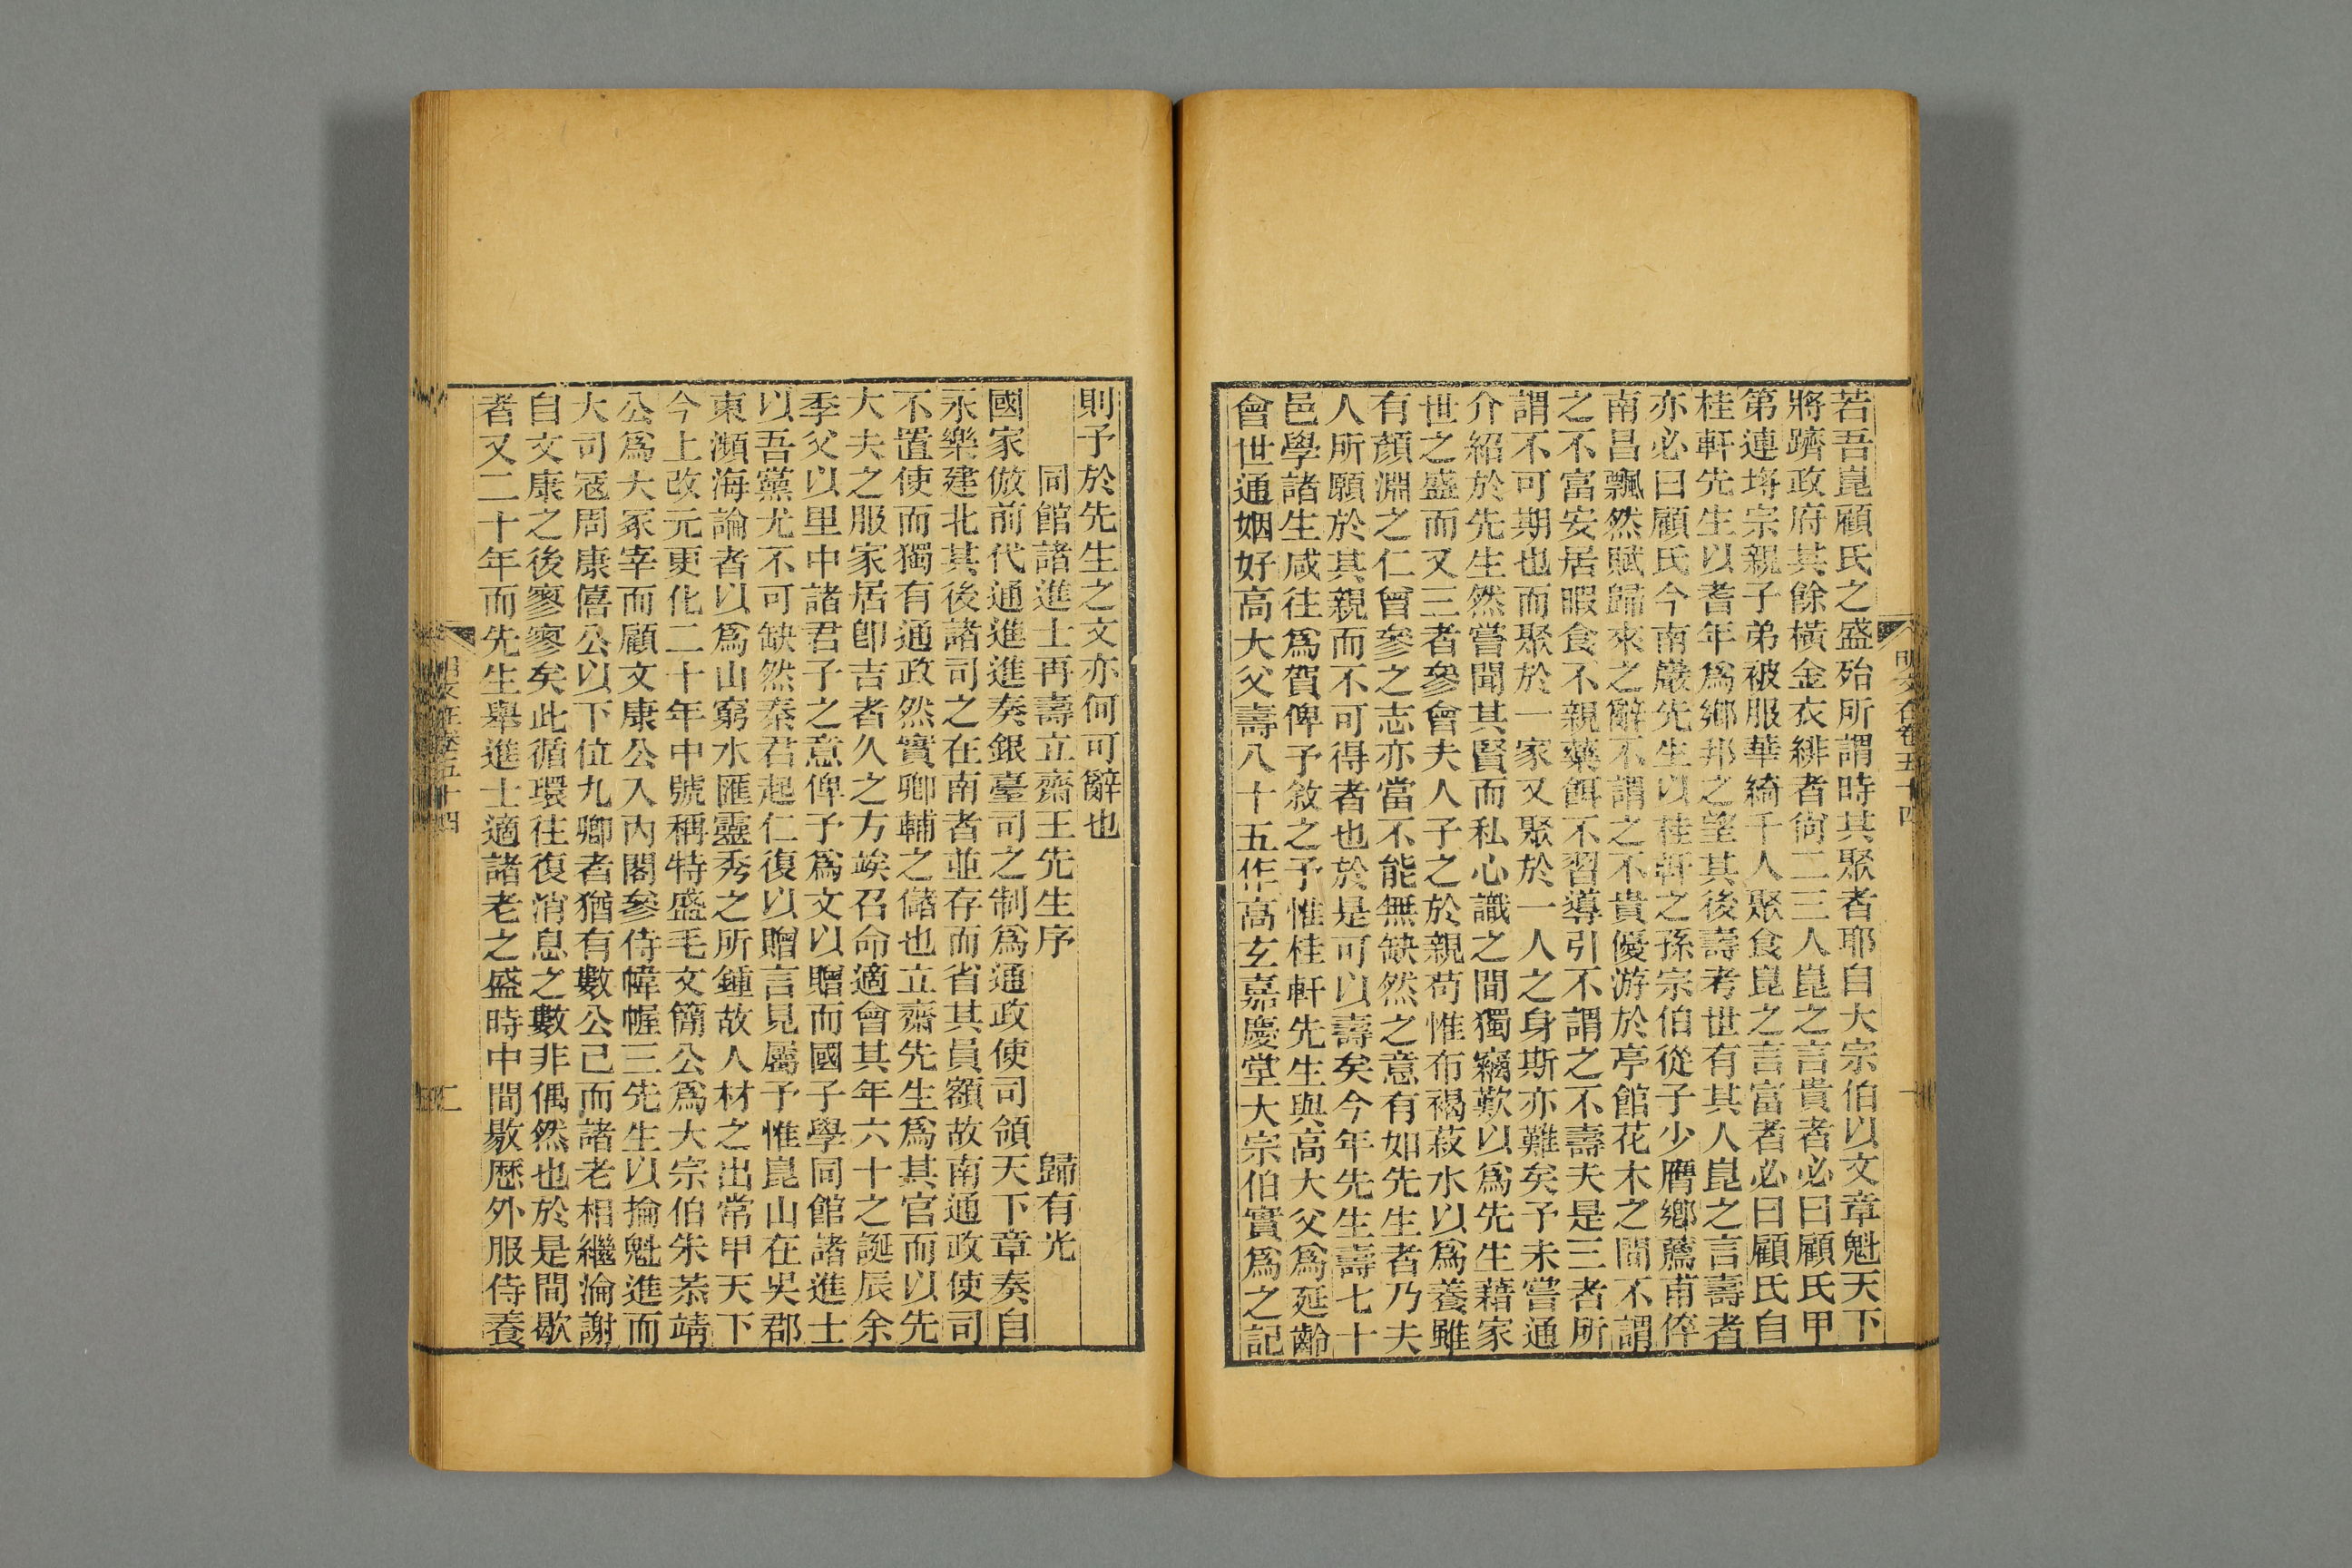 若吾崑顧氏之盛殆所謂時其聚者耶自大宗伯以文章魁天下
將躋政府其餘橫金衣緋者尙二三人崑之言貴者必曰顧氏甲
第連塉宗親子弟被服華綺千人聚食崑之言富者必曰顧氏自
桂軒先生以耆年爲鄉邦之望其後壽考世有其人崑之言壽者
亦必曰顧氏今南巖先生以桂軒之孫宗伯從子少膺鄉薦甫倅
南昌飄然賦歸來之辭不謂之不貴優游於亭館花木之間不謂
之不富安居暇食不親藥餌不習導引不謂之不壽夫是三者所
謂不可期也而聚於一家又聚於一人之身斯亦難矣予未嘗通
介紹於先生然嘗聞其賢而私心識之間獨竊歎以爲先生藉家
世之盛而又三者參會夫人子之於親苟惟布褐菽水以爲養雖
有顏淵之仁曾參之志亦當不能無缺然之意有如先生者乃夫
人所願於其親而不可得者也於是可以壽矣今年先生壽七十
邑學諸生咸往爲賀俾予敘之予惟桂軒先生與高大父爲延齡
會世通姻好高大父壽八十五作高玄嘉慶堂大宗伯實爲之記
則予於先生之文亦何可辭也
同館諸進士再壽立齋王先生序 歸有光
國家倣前代通進進奏銀臺司之制爲通政使司領天下章奏自
永樂建北其後諸司之在南者並存而省其員額故南通政使司
不置使而獨有通政然實卿輔之儲也立齋先生爲其官而以先
大夫之服家居卽吉者久之方竢召命適會其年六十之誕辰余
季父以里中諸君子之意俾予爲文以贈而國子學同館諸進士
以吾黨尤不可缺然秦君起仁復以贈言見屬予惟崑山在吳郡
東瀕海論者以爲山窮水匯靈秀之所鍾故人材之出常甲天下
今上改元更化二十年中號稱特盛毛文簡公爲大宗伯朱恭靖
公爲大冢宰而顧文康公入內閣參侍幃幄三先生以掄魁進而
大司寇周康僖公以下位九卿者猶有數公已而諸老相繼淪謝
自文康之後寥寥矣此循環往復消息之數非偶然也於是間歇
者又二十年而先生舉進士適諸老之盛時中間敭歷外服侍養